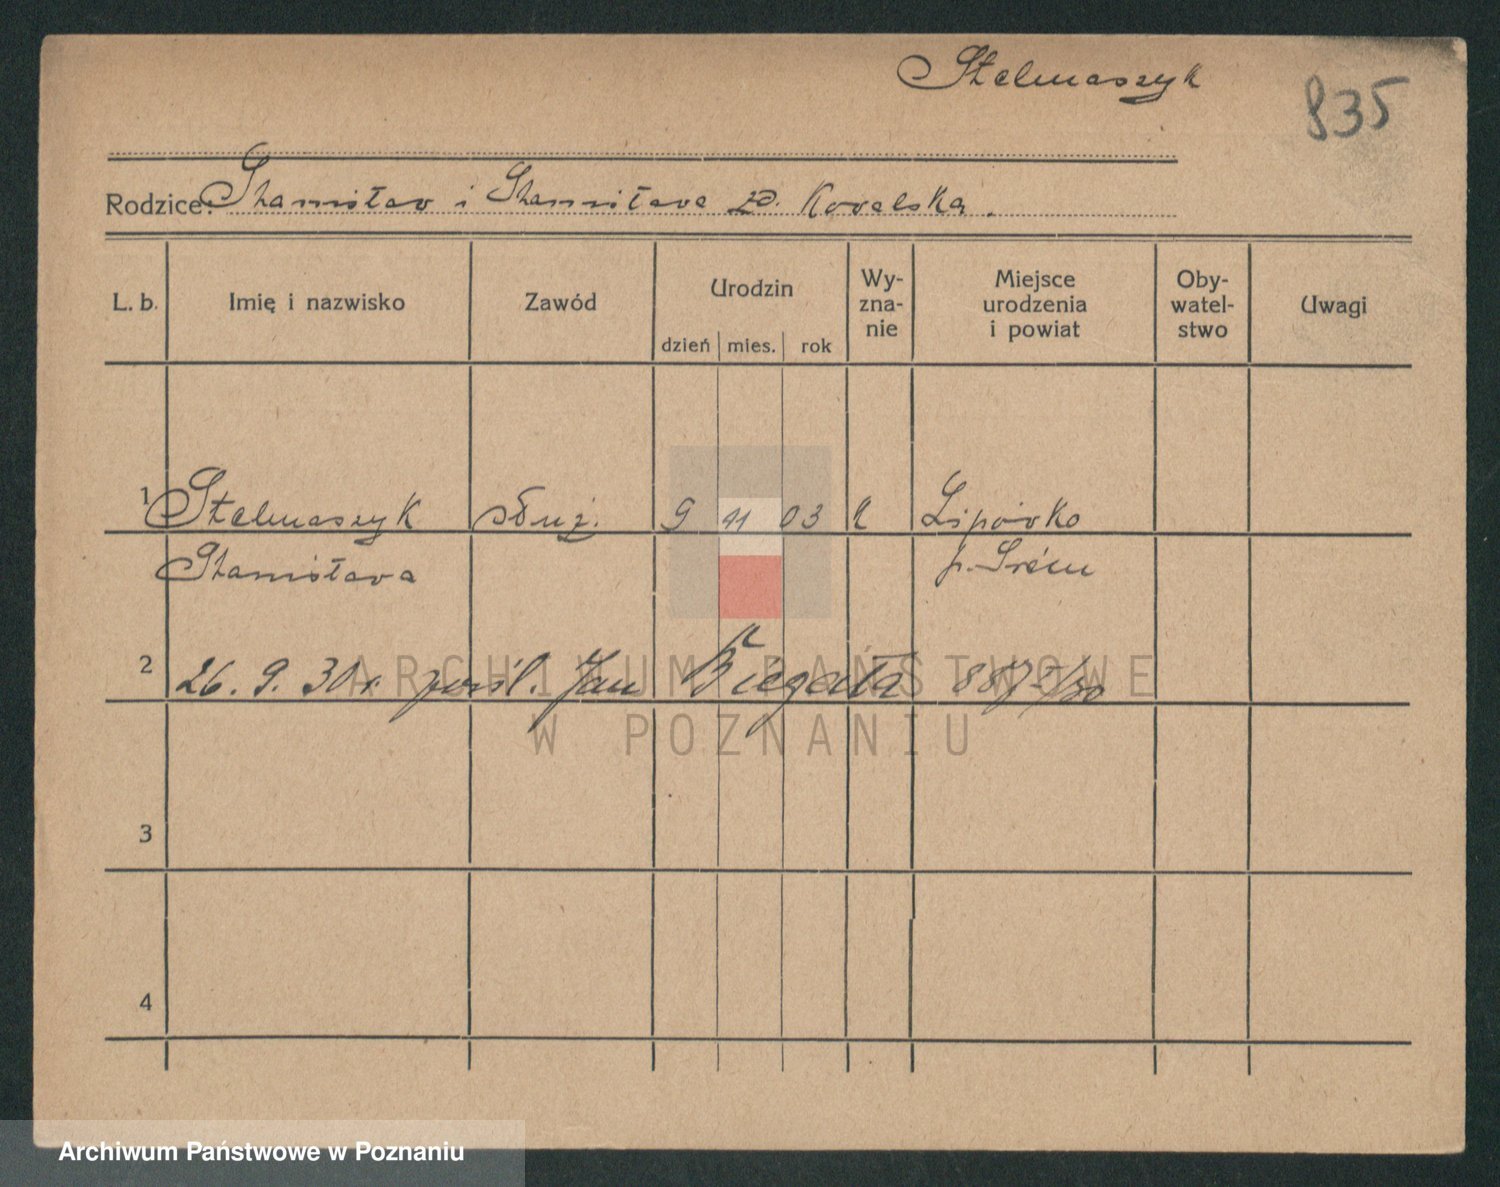 Stelmaszyk
835
Rodzice: Stanisław i Stanisława zd. Kowalska.
L. b. Imię i nazwisko Zawód Urodzin Wy-zna-nie Miejsce urodzenia i powiat Oby-watel-stwo Uwagi
dzień mies. rok
1 Stelmaszyk służ. 9 11 03 k Lipówko
Stanisława p. Śrem
2 26. 9. 30 r. pośl. Jan Biegała
3
4
ARCHIWUM PAŃSTWOWE
W POZNANIU
Archiwum Państwowe w Poznaniu